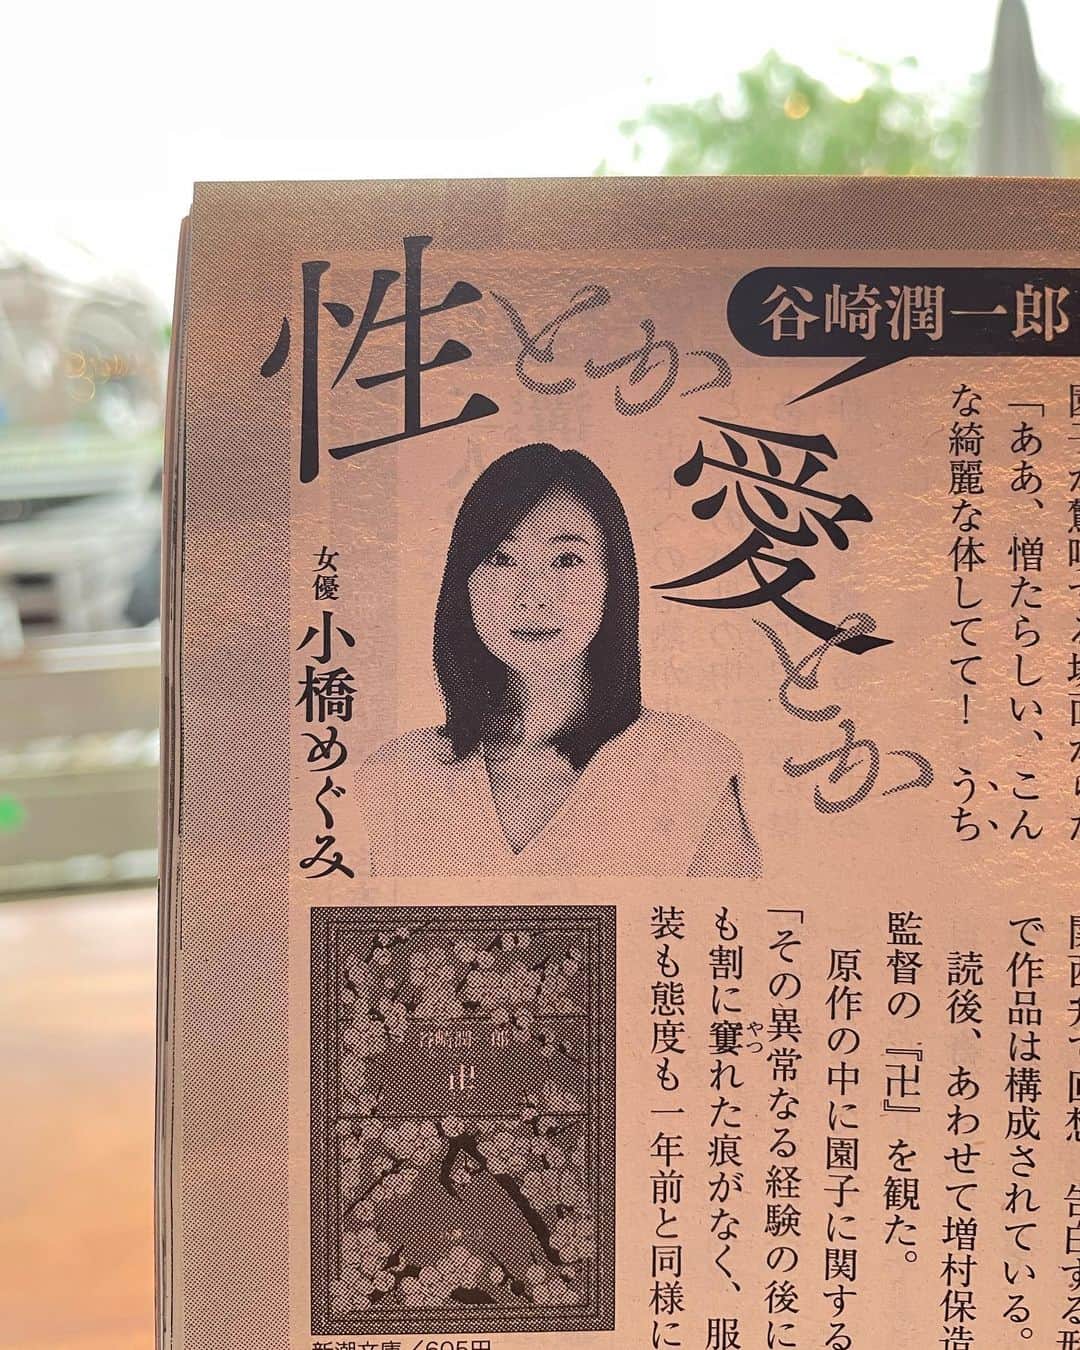 性とか
愛とか
谷崎潤一郎
女優 小橋めぐみ
「ああ、憎たらしい、こん
な綺麗な体してて！　うち
で作品は構成されている。
読後、あわせて増村保造
監督の『卍』を観た。
原作の中に園子に関する
「その異常なる経験の後に
も割に窶れた痕がなく、服
やつ
装も態度も一年前と同様に
谷崎潤一郎
卍
新潮文庫／605円